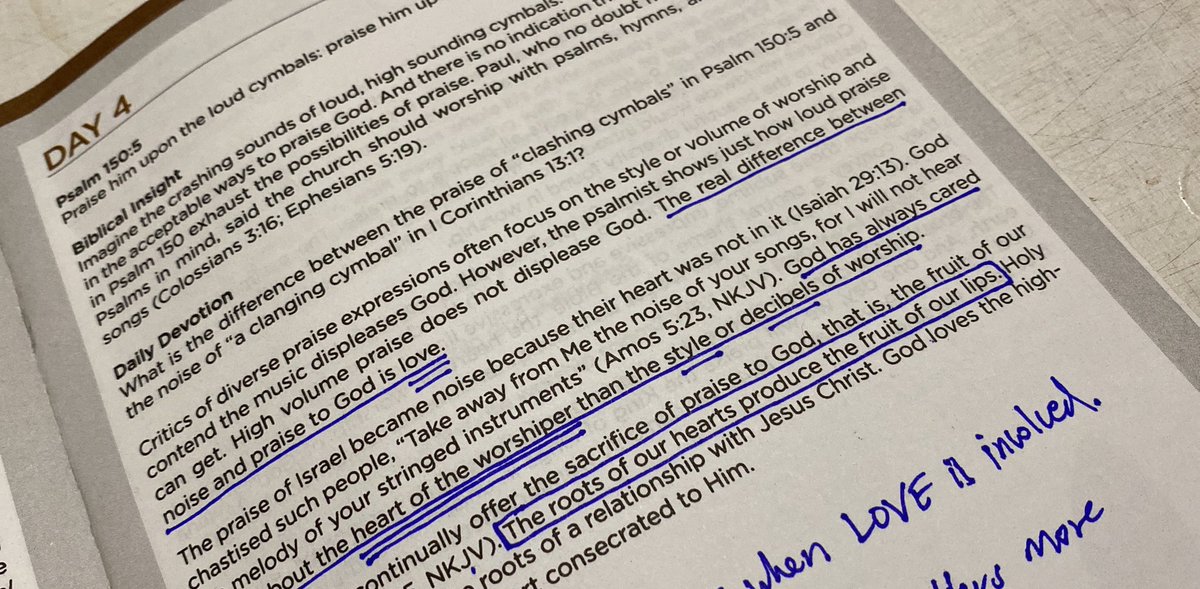 DAY 4
Psalm 150:5
Praise him upon the loud cymbals: praise him up
Biblical Insight
Imagine the crashing sounds of loud, high sounding cymbals.
in the acceptable ways to praise God. And there is no indication
in Psalm 150 exhaust the possibilities of praise. Paul, who no doubt
Psalms in mind, said the church should worship with psalms, hymns,
songs (Colossians 3:16; Ephesians 5:19).
Daily Devotion
What is the difference between the praise of “clashing cymbals” in Psalm 150:5 and
the noise of “a clanging cymbal” in I Corinthians 13:1?
Critics of diverse praise expressions often focus on the style or volume of worship and
contend the music displeases God. However, the psalmist shows just how loud praise
can get. High volume praise does not displease God. The real difference between
noise and praise to God is love.
The praise of Israel became noise because their heart was not in it (Isaiah 29:13). God
chastised such people, “Take away from Me the noise of your songs, for I will not hear
melody of your stringed instruments” (Amos 5:23, NKJV). God has always cared
bout the heart of the worshiper than the style or decibels of worship.
ontinually offer the sacrifice of praise to God, that is, the fruit of our
NKJV). The roots of our hearts produce the fruit of our lips. Holy
roots of a relationship with Jesus Christ. God loves the high-
consecrated to Him.
when LOVE is involved.
more